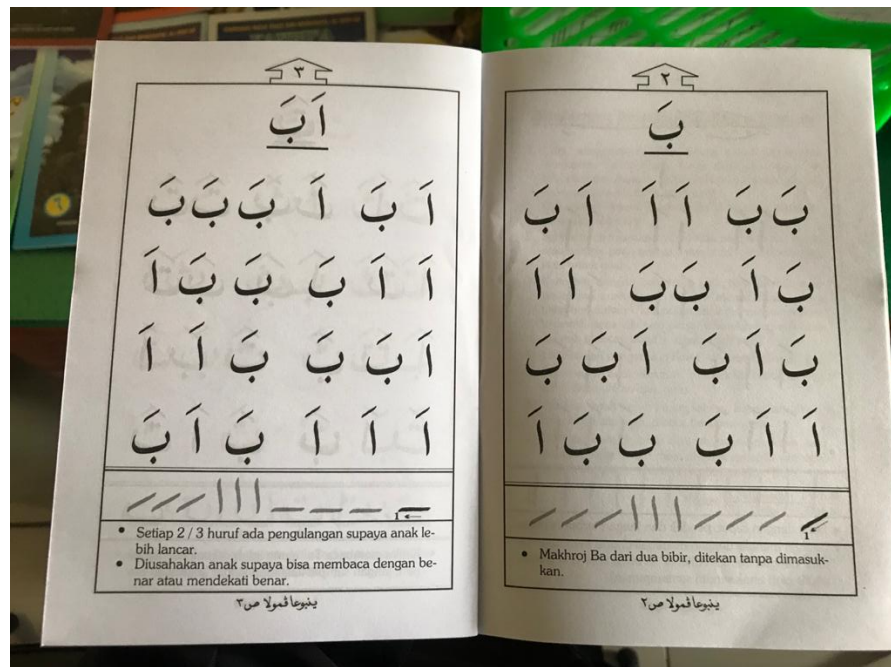 ٢
بَ
بَ بَ اَ اَ اَ بَ
بَ اَ بَ بَ اَ اَ
بَ اَ بَ اَ بَ بَ
اَ اَ بَ بَ بَ اَ
1
• Makhroj Ba dari dua bibir, ditekan tanpa dimasuk-
kan.
ينبوعا ڤمولا ص٢
٣
اَ بَ
اَ بَ اَ بَ بَ بَ
اَ اَ بَ بَ بَ اَ
اَ بَ بَ بَ اَ اَ
اَ اَ اَ بَ اَ بَ
1
• Setiap 2 / 3 huruf ada pengulangan supaya anak le-
bih lancar.
• Diusahakan anak supaya bisa membaca dengan be-
nar atau mendekati benar.
ينبوعا ڤمولا ص٣
٦